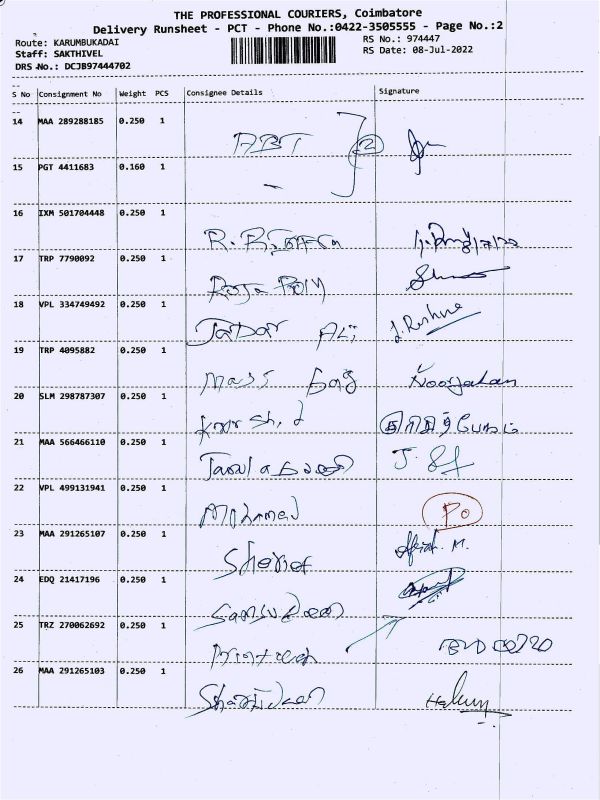 THE PROFESSIONAL COURIERS, Coimbatore
Delivery Runsheet - PCT - Phone No.:0422-3505555 - Page No.:2
Route: KARUMBUKADAI RS No.: 974447
Staff: SAKTHIVEL RS Date: 08-Jul-2022
DRS No.: DCJB97444702
S No Consignment No Weight PCS Consignee Details Signature
14 MAA 289288185 0.250 1
ABT 2
15 PGT 4411683 0.160 1
16 IXM 501704448 0.250 1
17 TRP 7790092 0.250 1
Roja Poly
18 VPL 334749492 0.250 1
Jabar Ali J. Reshma
19 TRP 4095882 0.250 1
Mass Bag Noorjahan
20 SLM 298787307 0.250 1
21 MAA 566466110 0.250 1
22 VPL 499131941 0.250 1
Mohamed Po
23 MAA 291265107 0.250 1
Sherief
24 EDQ 21417196 0.250 1
Samsudeen
25 TRZ 270062692 0.250 1
26 MAA 291265103 0.250 1